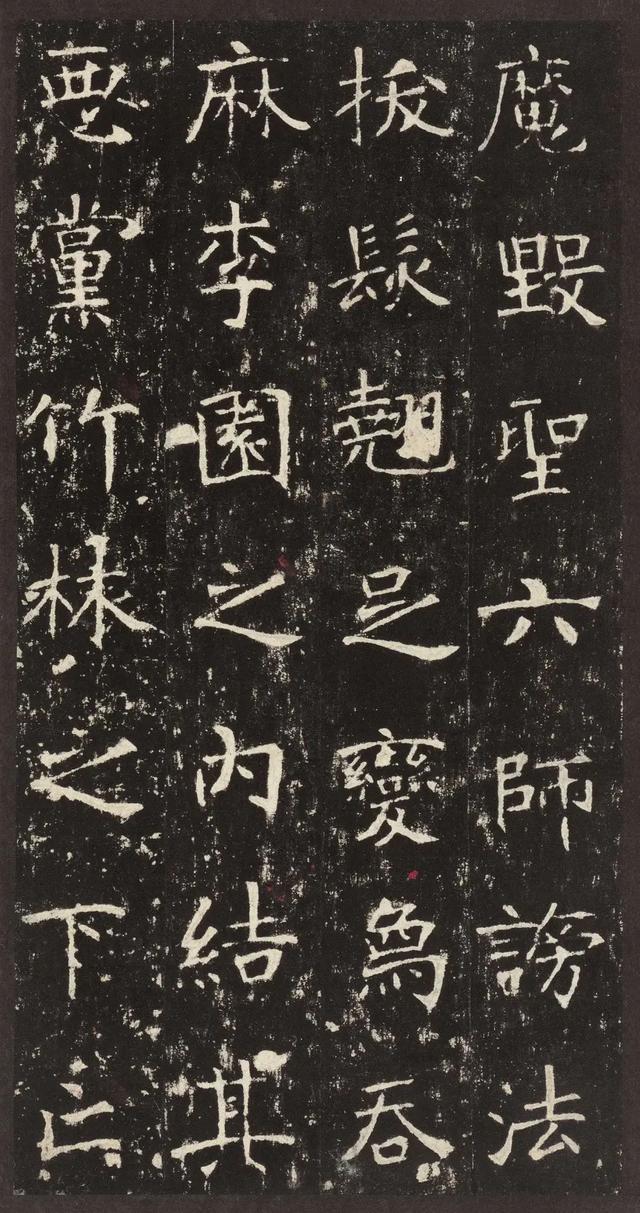 魔毀聖六師謗法
拔髮翹足變象吞
麻李園之內結其
惡黨竹林之下亡